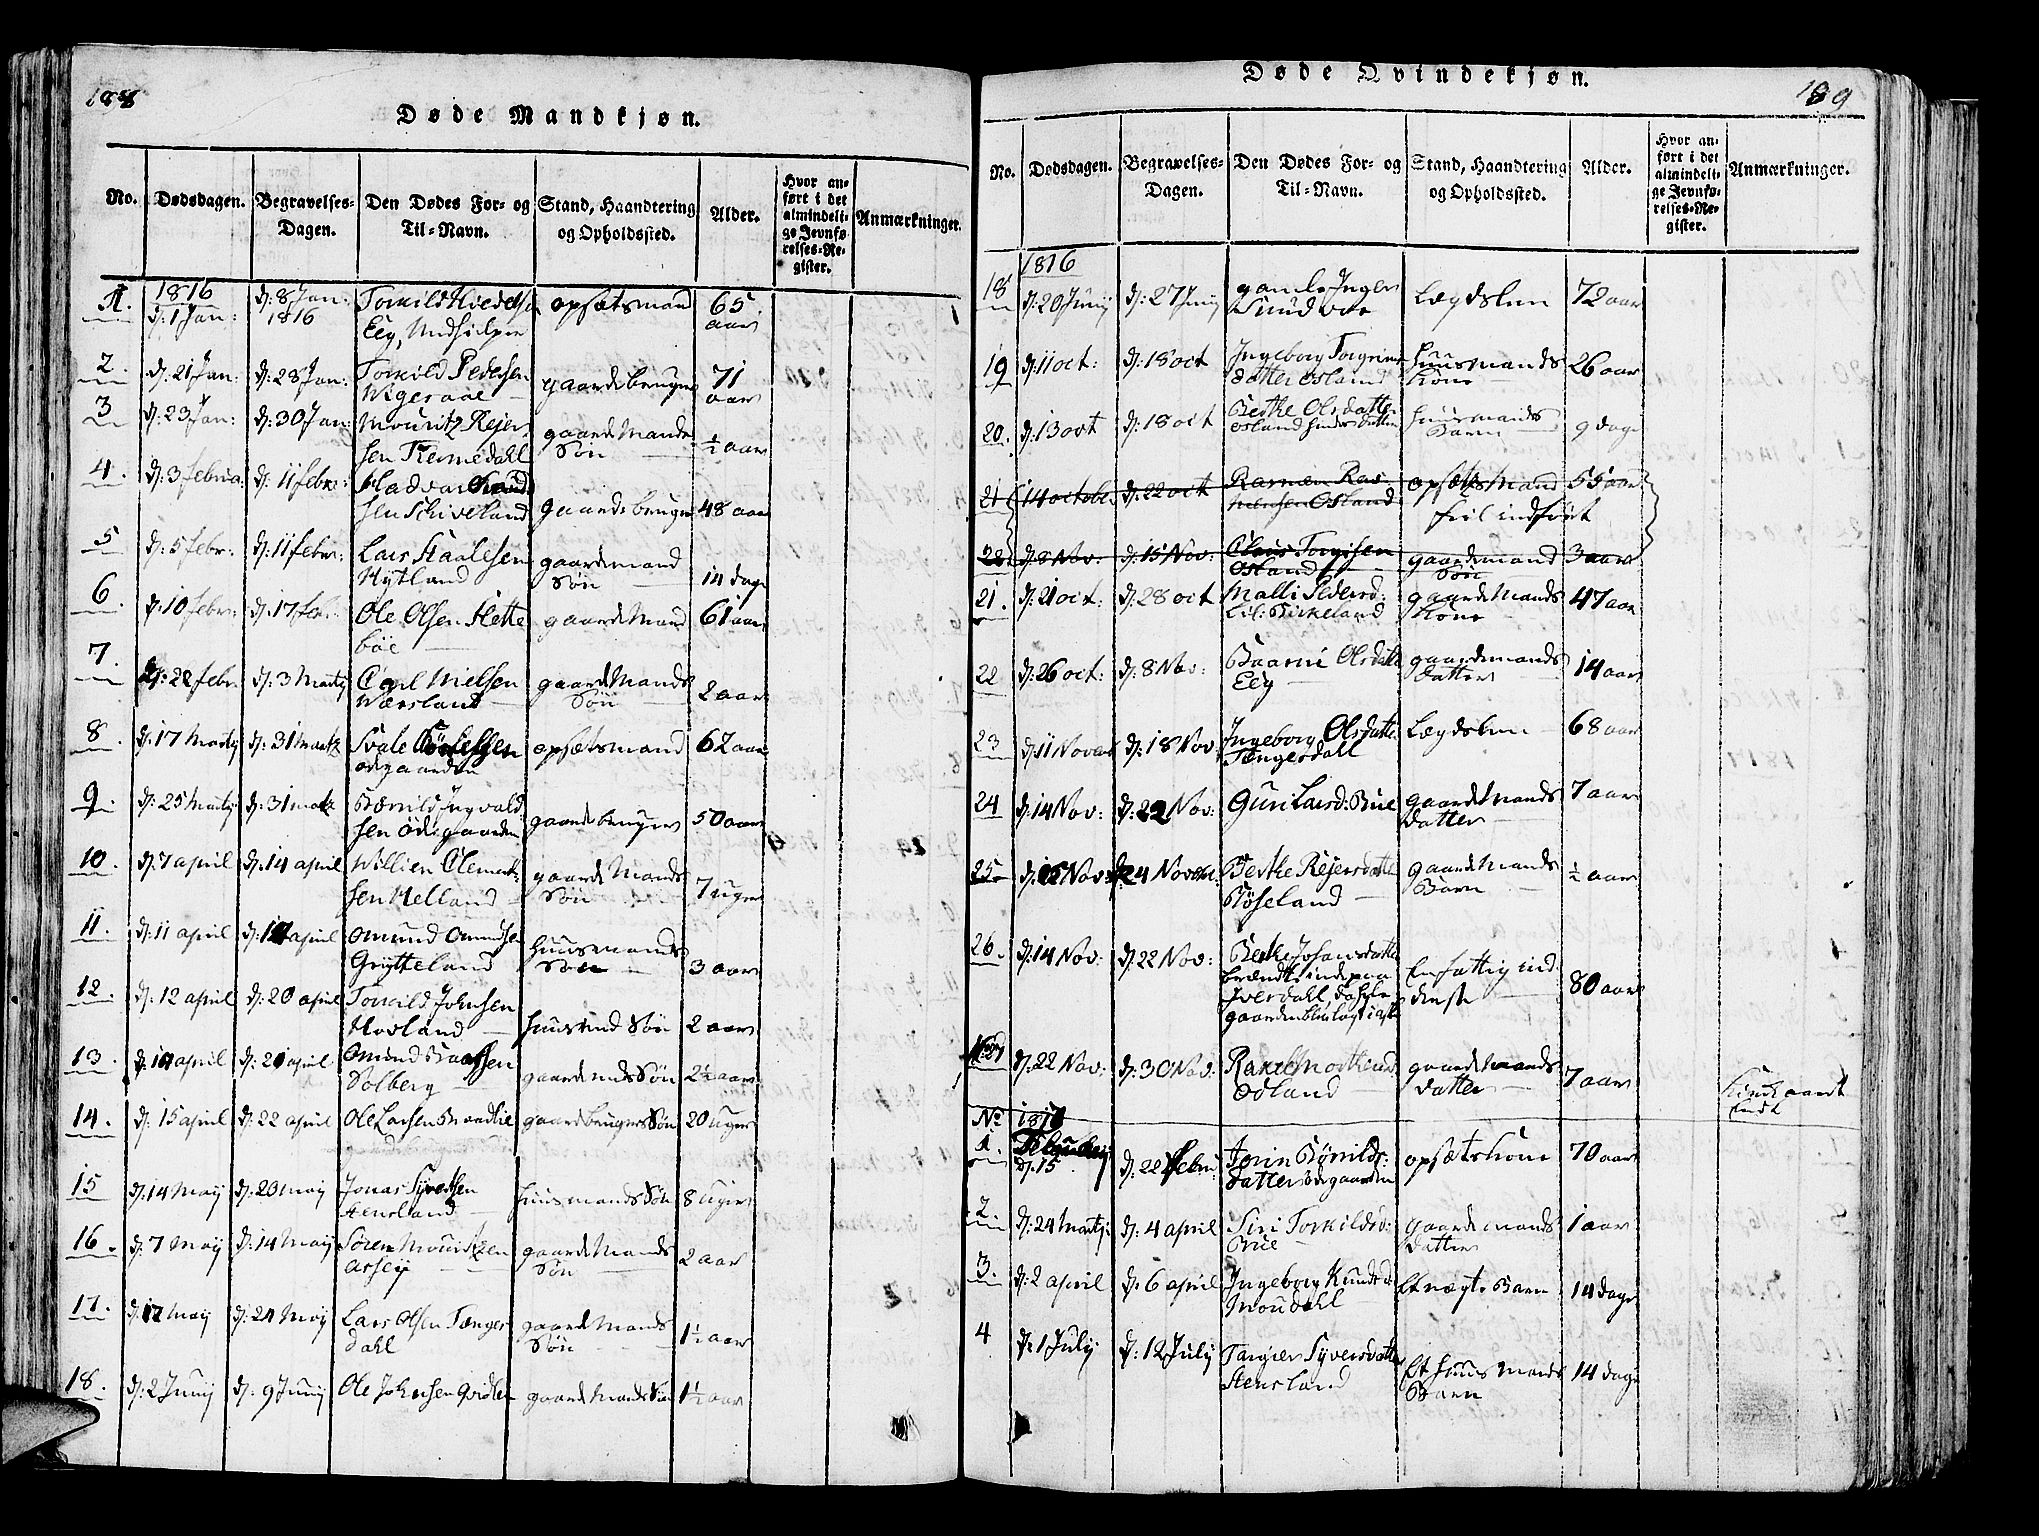 188
Døde Mandkjøn.
No. Dødsdagen. Begravelses-Dagen. Den Dødes For- og Til-Navn. Stand, Haandtering og Opholdssted. Alder. Hvor anført i det almindelige Jevnførelses-Register. Anmærkninger.
1. 1816 d: 1 Jan: d: 8 Jan: 1816 Torkild
Eeg, opsætsmand 65 aar
2. d: 21 Jan: d: 28 Jan: Torkild Pedersen
gaardebruger 71 aar
3 d: 23 Jan: d: 30 Jan: Mouritz Rejer
sen gaardemands Søn ½ aar
4. d: 3 februa: d: 11 febr:
sen Schiveland gaardebruger 48 aar
5 d: 5 febr: d: 11 febr: Lars Staalesen
Hytland gaardemand Søn 14 dage
6. d: 10 febr: d: 17 febr: Ole Olsen Slette
bøe gaardemand 61 aar
7. d: 22 febr d: 3 Martj Carl Nielsen
Wersland gaardmands Søn 2 aar
8 d: 17 Martj d: 31 Martz Svale
ødegaarden opsætsmand 62 aar
9. d: 25 Martj d: 31 Martz Børrild Ingvald
sen Ødegaarden gaardebruger 50 aar
10. d: 7 april d: 14 april Willien Clemet
sen Helland gaardemands Søn 7 uger
11. d: 11 april d: 14 april Omund Omundsen
Grytteland Huusmands Søn 3 aar
12. d: 12 april d: 20 april Torkild Johnsen
Hovland Huusmd Søn 2 aar
13. d: april d: 21 april Omund
Solberg gaardmds Søn 2½ aar
14. d: 15 april d: 22 april Ole Larsen gaardbrugers Søn 20 Uger
15 d: 14 Maij d: 20 maij Jonas Syvertsen
Stensland Huusmands Søn 8 uger
16. d: 7 Maij d: 14 Maij Søren Mouritzen
gaardemands Søn 2 aar
17. d: 17 maij d: 24 Maij Lars Olsen Tænges
dahl gaardmands Søn 1½ aar
18. d: 2 Junij d: 9 Junij Ole Johnsen gaardmands Søn 1½ aar
Døde Qvindekjøn.
189
No. Dødsdagen. Begravelses-Dagen. Den Dødes For- og Til-Navn. Stand, Haandtering og Opholdssted. Alder. Hvor anført i det almindelige Jevnførelses-Register. Anmærkninger.
1816
18 d: 20 Junij d: 27 Junij gamle Inger
Lægdslem 72 aar
19 d: 11 oct: d: 18 oct Ingeborg Torgrims
datter Osland Huusmands Kone 26 aar
20. d: 13 oct d: 18 oct Berthe Olsdatter
Osland hindes datter Huusmands Barn 9 dage
21 14 october d: 22 oct Rasmen Ras
mensen Osland opsætsmand 55 aar
feil indført
22 d: 8 Nov: d: 15 Nov: Claus Torgisen
Osland gaardemand Søn 3 aar
21. d: 21 oct: d: 28 oct Malli Pedersd:
Lil: Birkeland gaardemands Kone 47 aar
22 d: 26 oct: d: 8 Nov: Olsdatter
Eeg gaardemands datter 14 aar
23 d: 11 Novembr d: 18 Nov: Ingeborg Olsdatter
Tængesdahl Lægdslem 68 aar
24 d: 14 Nov: d: 22 Nov: Guri Larsd: Bue gaardemands Datter 7 aar
25 d: 16 Nov: d: 24 Novem: Berthe Rejersdatter
Røseland gaardmands Barn ½ aar
26. d: 14 Nov: d: 22 Nov: Berthe Johansdatter
brændt inde paa
Iversdahl, da hele
gaarden blev lagt i aske En fattig ind
80 aar
27 d: 22 Nov: d: 30 Nov: Rakel Mortensd:
Odland gaardemands datter 7 aar Kirke aaret
Endt
No 1817
1. Februarij
d: 15 d: 22 febru: Jorin Børrilds:
datter Ødegaarden opsætskone 70 aar
2. d: 24 Martj: d: 4 april Siri Torkildsd:
Bue gaardemands datter 1 aar
3. d: 2 april d: 6 april Ingeborg Knudsd:
Moudahl Et uægte Barn 14 dage
4 d: 1 July d: 12 July Syversdatter
Stensland Et Huusmands Barn 14 dage